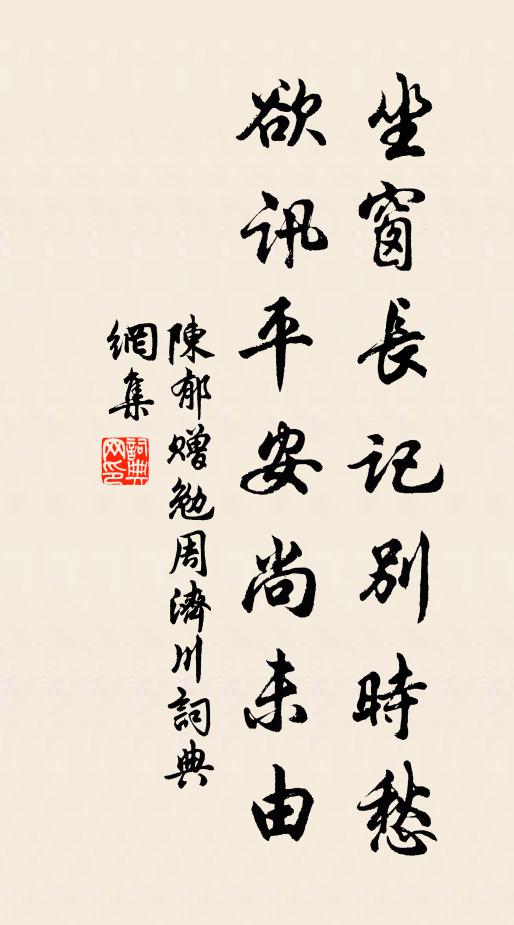 坐窗長記別時愁
欲訊平安尚未由
陳郁贈勉周濟川詞典
網集
詞典
网印